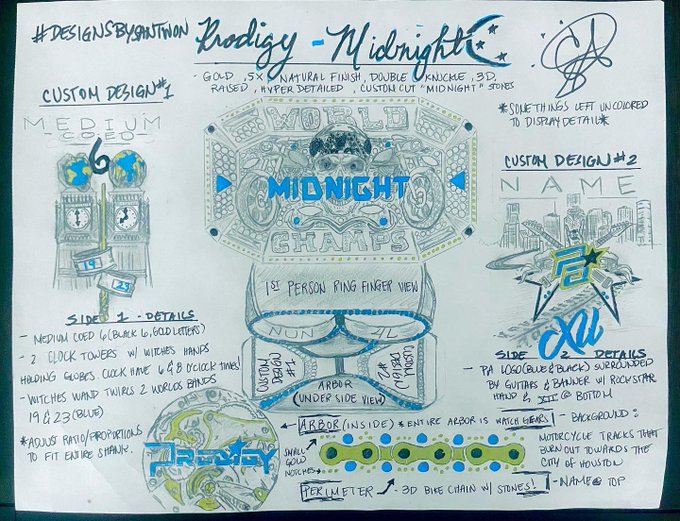 #DESIGNSBYSANTWON
Prodigy - Midnight
- GOLD, 5X, NATURAL FINISH, DOUBLE KNUCKLE, 3D,
RAISED, HYPER DETAILED, CUSTOM CUT "MIDNIGHT" STONES
*SOME THINGS LEFT UNCOLORED
TO DISPLAY DETAIL*
CUSTOM DESIGN #1
MEDIUM
COED
6
19
23
SIDE 1 - DETAILS
- MEDIUM COED 6 (BLACK 6, GOLD LETTERS)
- 2 CLOCK TOWERS W/ WITCHES HANDS
HOLDING GLOBES. CLOCK HAVE 6 & 8 O'CLOCK TIMES/
- WITCHES WAND TWIRLS 2 WORLDS BANDS
19 & 23 (BLUE)
*ADJUST RATIO/PROPORTIONS
TO FIT ENTIRE SHANK.
WORLD
MIDNIGHT
CHAMPS
1ST PERSON RING FINGER VIEW
NUN
4L
CUSTOM DESIGN #1
CUSTOM DESIGN #2
ARBOR
(UNDER SIDE VIEW)
CUSTOM DESIGN #2
NAME
PA
XII
SIDE 2 DETAILS
- PA LOGO (BLUE & BLACK) SURROUNDED
BY GUITARS & BANNER W/ ROCKSTAR
HAND & XII @ BOTTOM
- BACKGROUND:
MOTORCYCLE TRACKS THAT
BURN OUT TOWARDS THE
CITY OF HOUSTON
- NAME @ TOP
PRODIGY
ARBOR (INSIDE) *ENTIRE ARBOR IS WATCH GEARS!
SMALL
GOLD
NOTCHES
PERIMETER - 3D BIKE CHAIN W/ STONES!